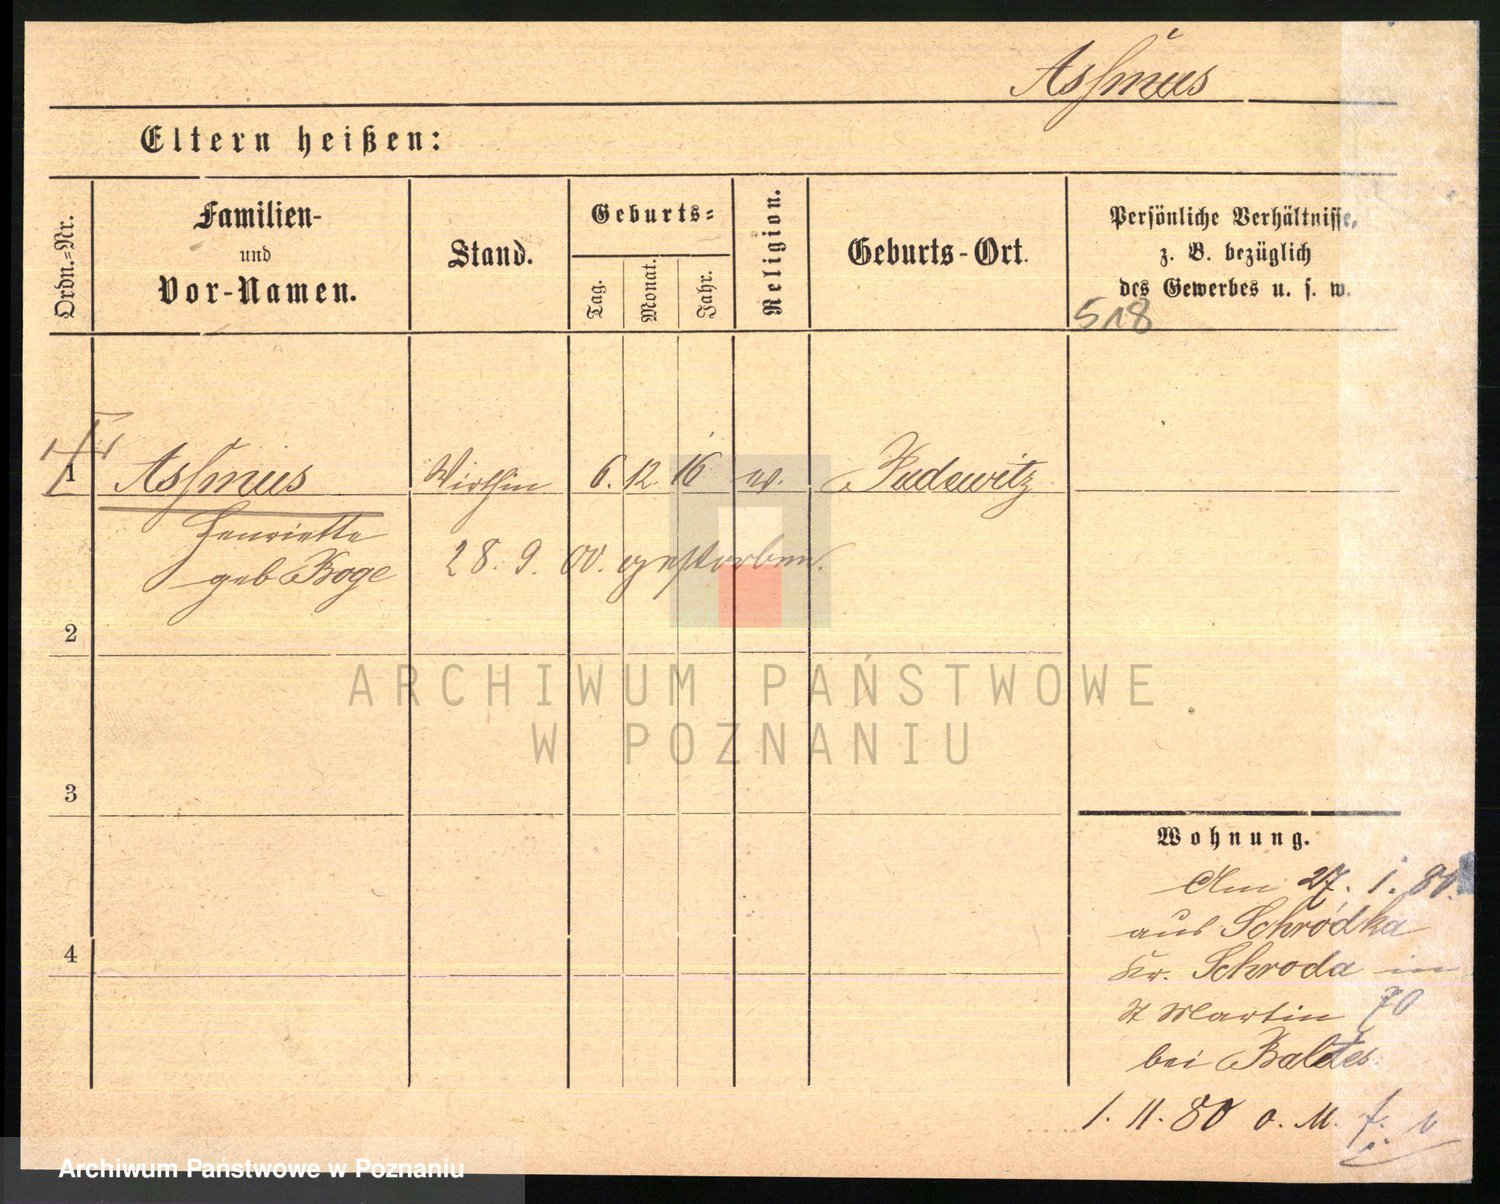 Assmus
Eltern heißen:
Ordn.-Nr.
Familien-
und
Vor-Namen.
Stand.
Geburts-
Tag.
Monat.
Jahr.
Religion.
Geburts-Ort.
Persönliche Verhältnisse,
z. B. bezüglich
des Gewerbes u. s. w.
518
1 Assmus Wirthin 6. 12. 16 ev. Pudewitz
Henriette
geb Boge 28. 9. 00. gestorben.
2
3
4
Wohnung.
Am 27. 1. 80.
aus Schrodka
Kr. Schroda in
St Martin 70
bei Baltes.
1. 11. 80 o. M.
ARCHIWUM PAŃSTWOWE
W POZNANIU
Archiwum Państwowe w Poznaniu